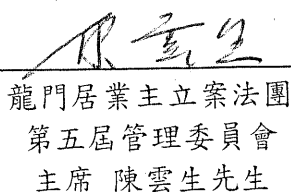 陳雲生
龍門居業主立案法團
第五屆管理委員會
主席 陳雲生先生